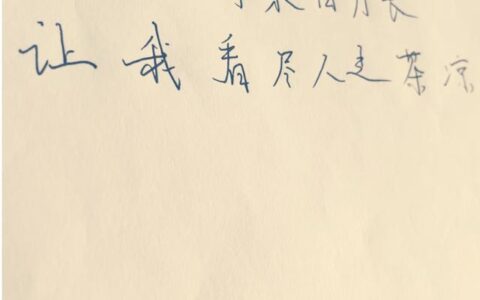 让我看尽人走茶凉